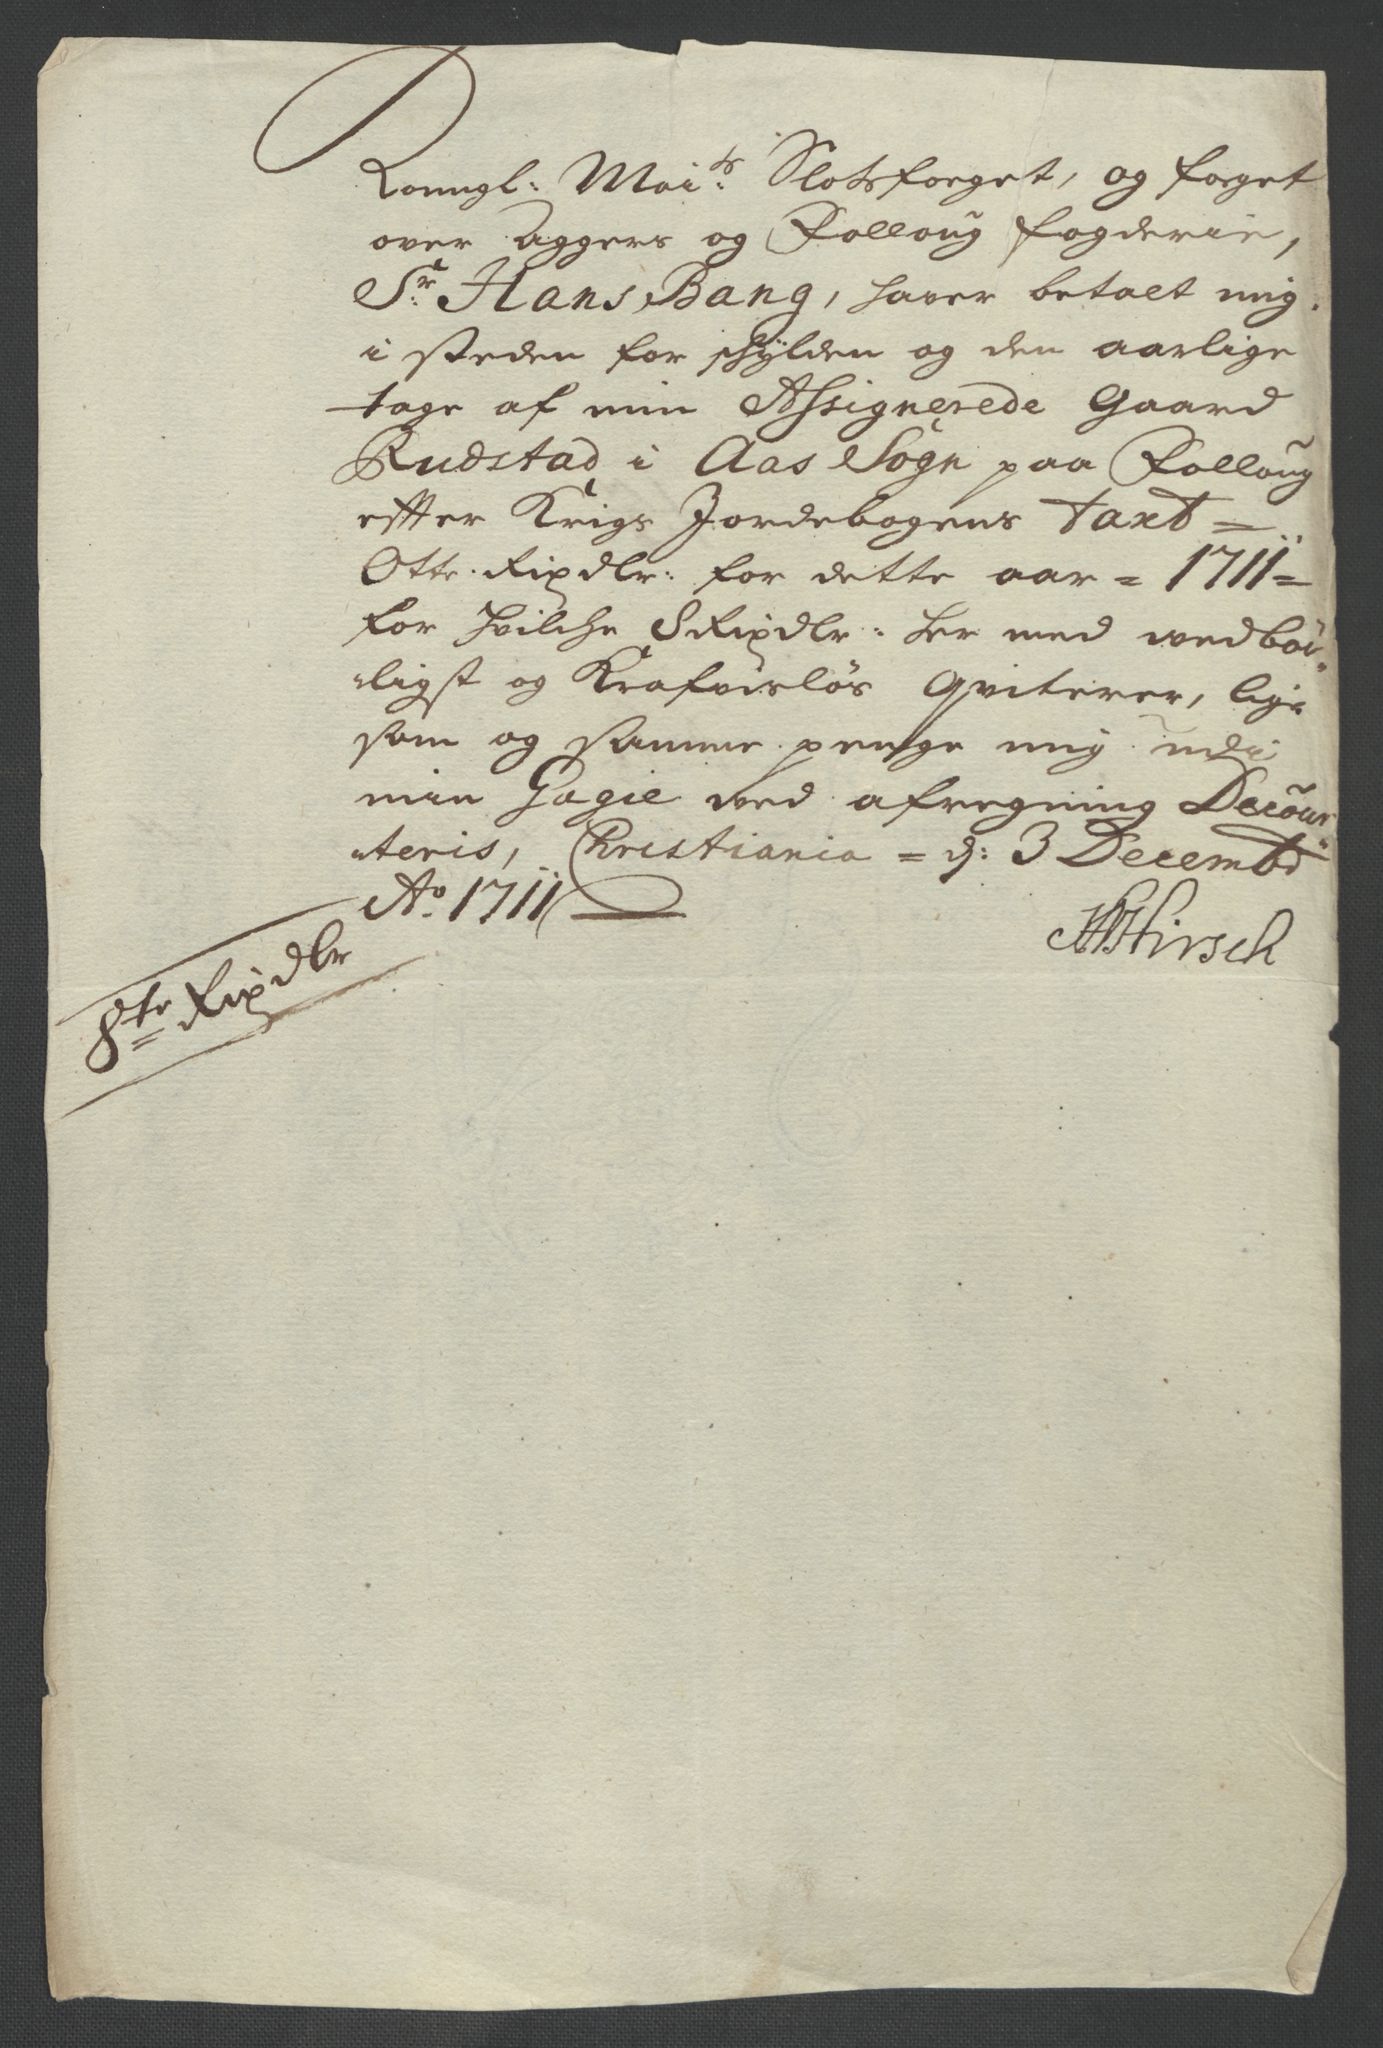 Konngl: Mai:ts Slotsfoget, og foget
over Aggers og Folloug fogderie,
Sr: Hans Bang, haver betalt mig
i steden for schÿlden og den aarlige
tage af min Assignerede Gaard
Rudstad i Aas Sogn paa Folloug
effter Krigs Jordebogens taxt =
Otte Rixdlr: for dette aar = 1711 =
for hvilche 8 Rixdlr: her med vedbör„
„ligst og Krafvislös qviterer, lige
som og samme penge mig udi
min Gagie ved afregning Decour„
„teris, Christiania = d: 3 Decembr
Ao. 1711
HHirsch
8te Rixdlr